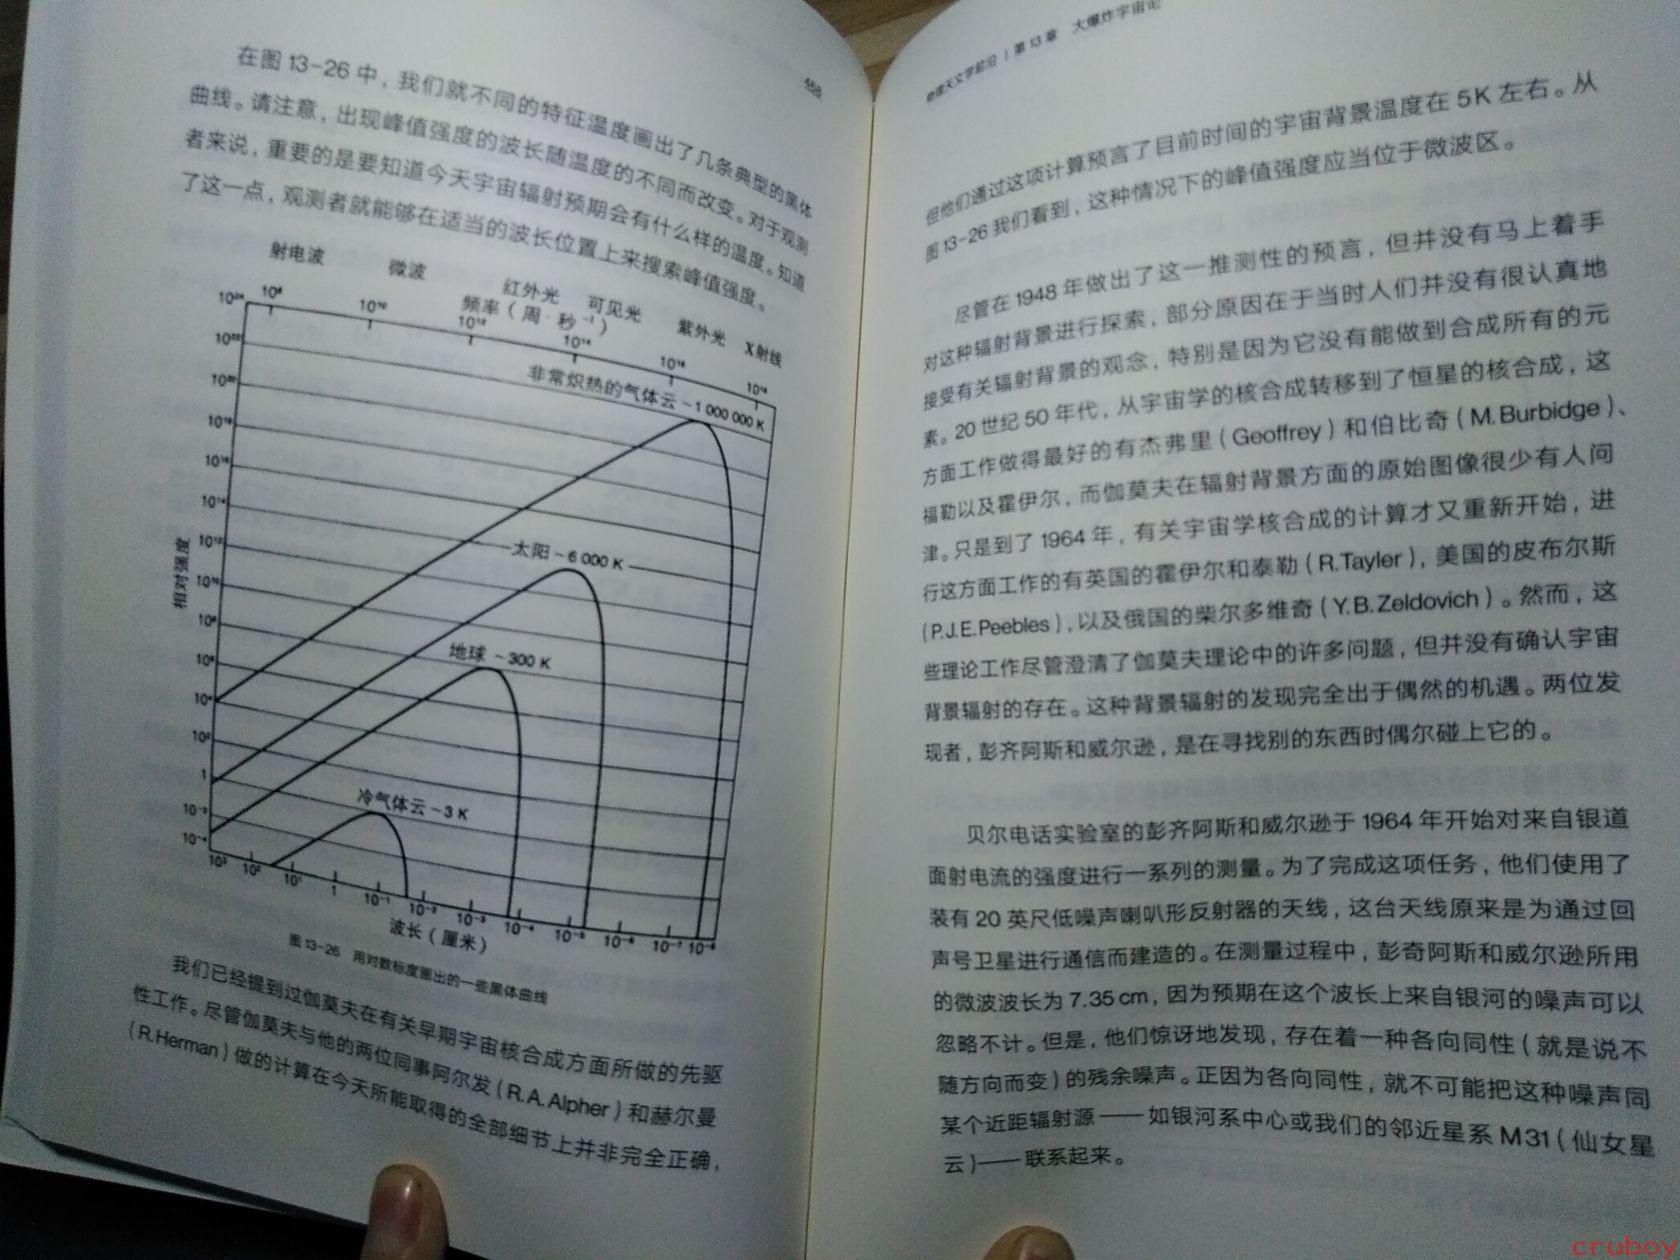 488
在图 13-26 中，我们就不同的特征温度画出了几条典型的黑体
曲线。请注意，出现峰值强度的波长随温度的不同而改变。对于观测
者来说，重要的是要知道今天宇宙辐射预期会有什么样的温度。知道
了这一点，观测者就能够在适当的波长位置上来搜索峰值强度。
射电波 微波 红外光 可见光 紫外光 X射线
频率（周·秒⁻¹）
10⁸ 10¹⁰ 10¹² 10¹⁴ 10¹⁶ 10¹⁸
非常炽热的气体云 ~1 000 000 K
太阳 ~6 000 K
地球 ~300 K
冷气体云 ~3 K
相对强度
10²⁴
10²²
10²⁰
10¹⁸
10¹⁶
10¹⁴
10¹²
10¹⁰
10⁸
10⁶
10⁴
10²
1
10⁻²
10⁻⁴
10³ 10² 10¹ 1 10⁻¹ 10⁻² 10⁻³ 10⁻⁴ 10⁻⁵ 10⁻⁶ 10⁻⁷ 10⁻⁸
波长（厘米）
图 13-26 用对数标度画出的一些黑体曲线
我们已经提到过伽莫夫在有关早期宇宙核合成方面所做的先驱
性工作。尽管伽莫夫与他的两位同事阿尔发（R.A.Alpher）和赫尔曼
（R.Herman）做的计算在今天所能取得的全部细节上并非完全正确，
物理天文学前沿 | 第 13 章 大爆炸宇宙论
但他们通过这项计算预言了目前时间的宇宙背景温度在 5K 左右。从
图 13-26 我们看到，这种情况下的峰值强度应当位于微波区。
尽管在 1948 年做出了这一推测性的预言，但并没有马上着手
对这种辐射背景进行探索，部分原因在于当时人们并没有很认真地
接受有关辐射背景的观念，特别是因为它没有能做到合成所有的元
素。20 世纪 50 年代，从宇宙学的核合成转移到了恒星的核合成，这
方面工作做得最好的有杰弗里（Geoffrey）和伯比奇（M.Burbidge）、
福勒以及霍伊尔，而伽莫夫在辐射背景方面的原始图像很少有人问
津。只是到了 1964 年，有关宇宙学核合成的计算才又重新开始，进
行这方面工作的有英国的霍伊尔和泰勒（R.Tayler），美国的皮布尔斯
（P.J.E.Peebles），以及俄国的柴尔多维奇（Y.B.Zeldovich）。然而，这
些理论工作尽管澄清了伽莫夫理论中的许多问题，但并没有确认宇宙
背景辐射的存在。这种背景辐射的发现完全出于偶然的机遇。两位发
现者，彭齐阿斯和威尔逊，是在寻找别的东西时偶尔碰上它的。
贝尔电话实验室的彭齐阿斯和威尔逊于 1964 年开始对来自银道
面射电流的强度进行一系列的测量。为了完成这项任务，他们使用了
装有 20 英尺低噪声喇叭形反射器的天线，这台天线原来是为通过回
声号卫星进行通信而建造的。在测量过程中，彭奇阿斯和威尔逊所用
的微波波长为 7.35 cm，因为预期在这个波长上来自银河的噪声可以
忽略不计。但是，他们惊讶地发现，存在着一种各向同性（就是说不
随方向而变）的残余噪声。正因为各向同性，就不可能把这种噪声同
某个近距辐射源——如银河系中心或我们的邻近星系 M31（仙女星
云）——联系起来。
cruboy